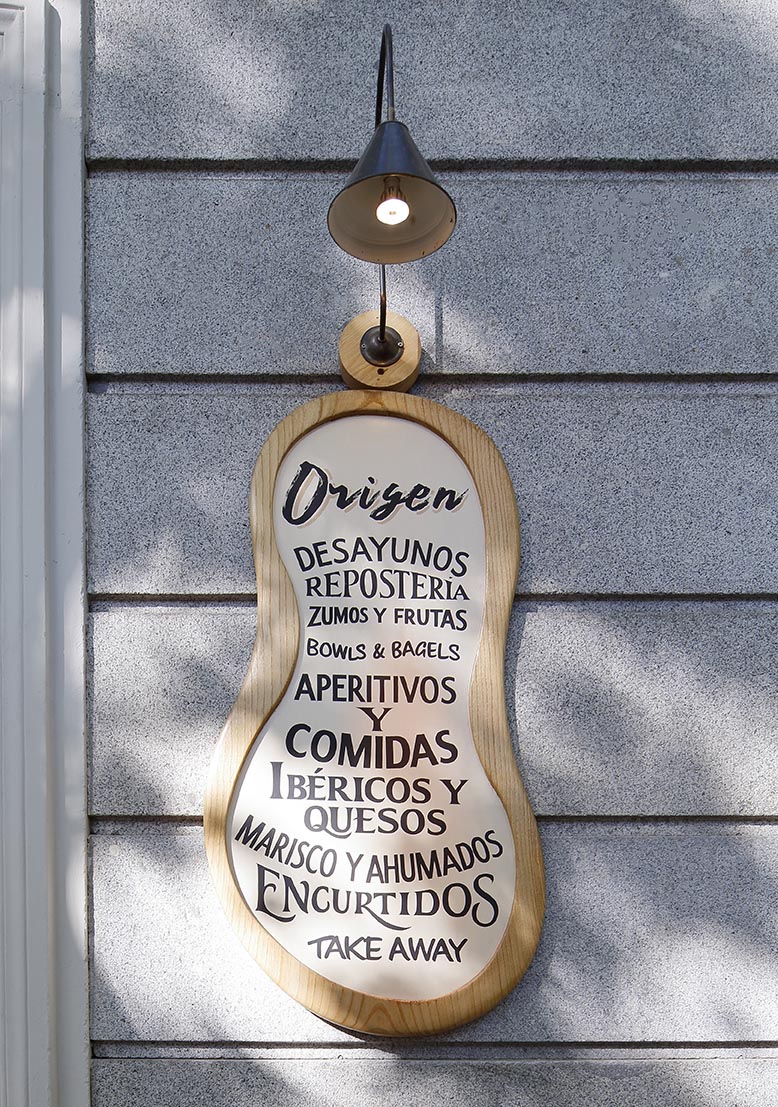 Origen
DESAYUNOS
REPOSTERÍA
ZUMOS Y FRUTAS
BOWLS & BAGELS
APERITIVOS
Y
COMIDAS
IBÉRICOS Y
QUESOS
MARISCO Y AHUMADOS
ENCURTIDOS
TAKE AWAY